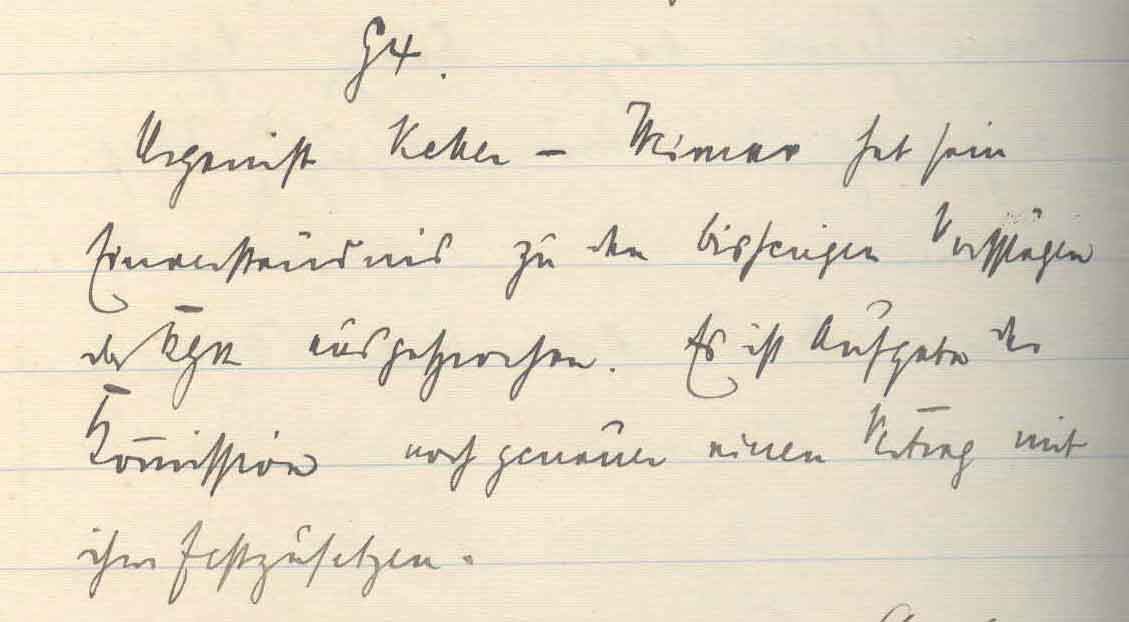 §4.
Organist Keller – Weimar hat sein
Einverständnis zu den bisherigen Vorschlägen
der KGR ausgesprochen. Es ist Aufgabe der
Kom̄ission noch genauer einen Vertrag mit
ihm festzusetzen.